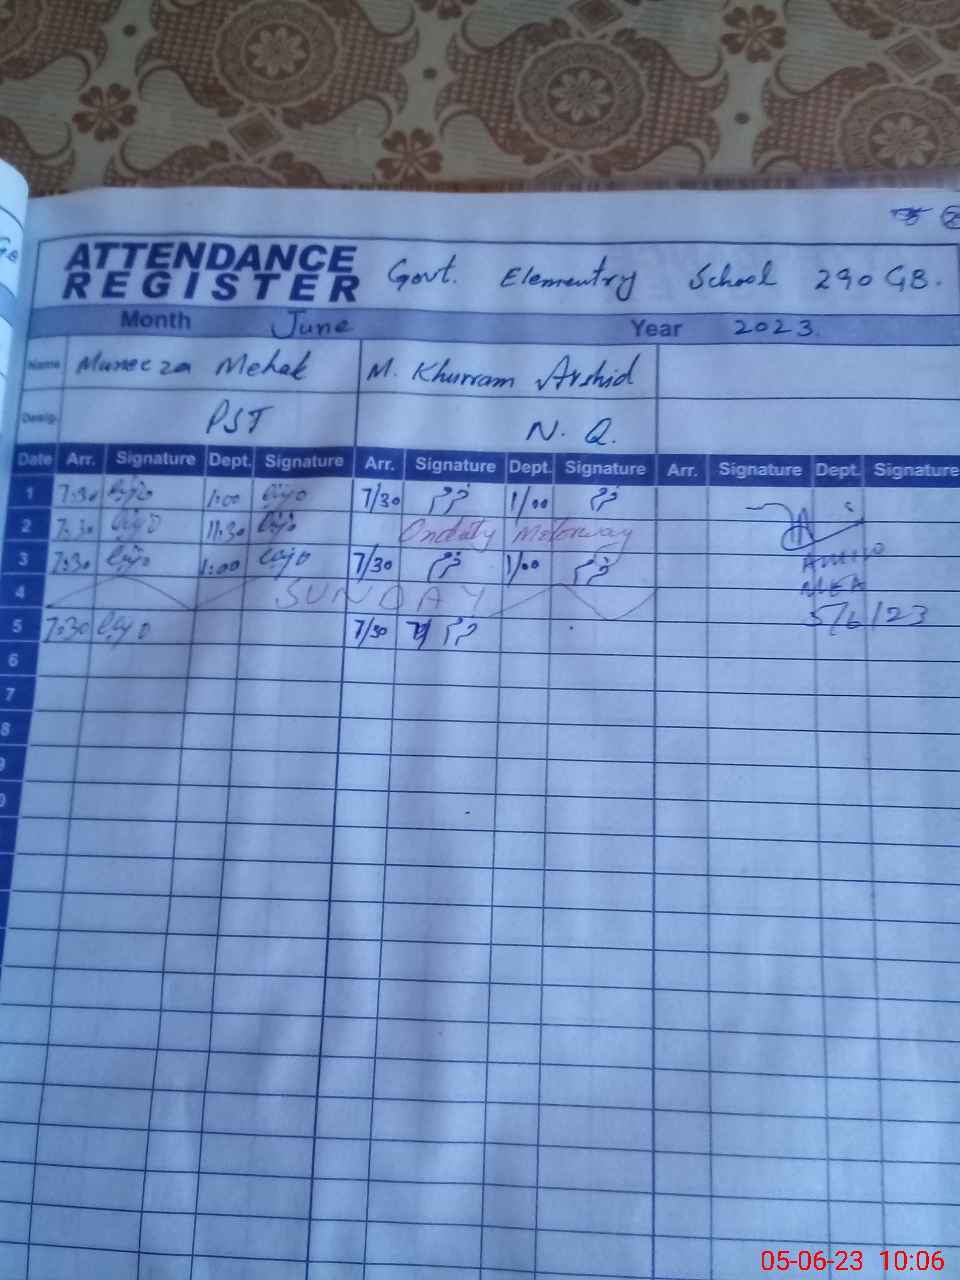 ATTENDANCE REGISTER Govt. Elementry School 290 GB.
Month June Year 2023.
Name Muneeza Mehak M. Khurram Arshid
Desig. PST N. Q.
Date Arr. Signature Dept. Signature Arr. Signature Dept. Signature Arr. Signature Dept. Signature
1 7:30 منیزہ 1:00 منیزہ 7/30 خرم 1/00 خرم
2 7:30 منیزہ 11:30 منیزہ Onduty Motorway
3 7:30 منیزہ 1:00 منیزہ 7/30 خرم 1/00 خرم
MEA
4 SUNDAY
5/6/23
5 7:30 منیزہ 7/30 خرم
6
7
8
9
05-06-23 10:06